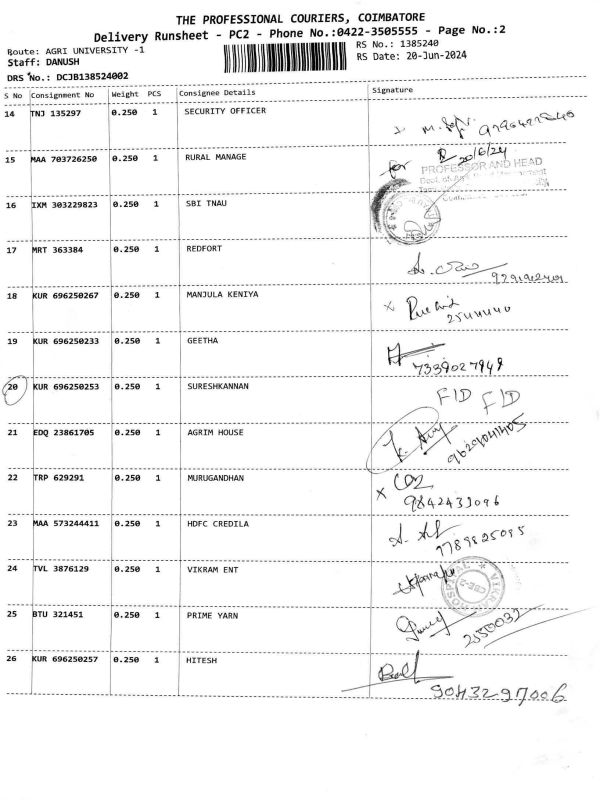 THE PROFESSIONAL COURIERS, COIMBATORE
Delivery Runsheet - PC2 - Phone No.:0422-3505555 - Page No.:2
Route: AGRI UNIVERSITY -1
RS No.: 1385240
Staff: DANUSH
RS Date: 20-Jun-2024
DRS No.: DCJB138524002
S No Consignment No Weight PCS Consignee Details Signature
14 TNJ 135297 0.250 1 SECURITY OFFICER
15 MAA 703726250 0.250 1 RURAL MANAGE for 20/6/24
PROFESSOR AND HEAD
16 IXM 303229823 0.250 1 SBI TNAU
17 MRT 363384 0.250 1 REDFORT
18 KUR 696250267 0.250 1 MANJULA KENIYA
2544440
19 KUR 696250233 0.250 1 GEETHA
7339027949
20 KUR 696250253 0.250 1 SURESHKANNAN FID FID
21 EDQ 23861705 0.250 1 AGRIM HOUSE
9629041405
22 TRP 629291 0.250 1 MURUGANDHAN
9842433096
23 MAA 573244411 0.250 1 HDFC CREDILA
9789825095
24 TVL 3876129 0.250 1 VIKRAM ENT
HOSPITAL CBE-2
25 BTU 321451 0.250 1 PRIME YARN
2550032
26 KUR 696250257 0.250 1 HITESH
9043297006